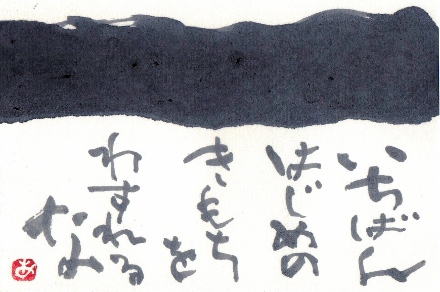 いちばん
はじめの
きもち
を
わすれる
なよ
あ